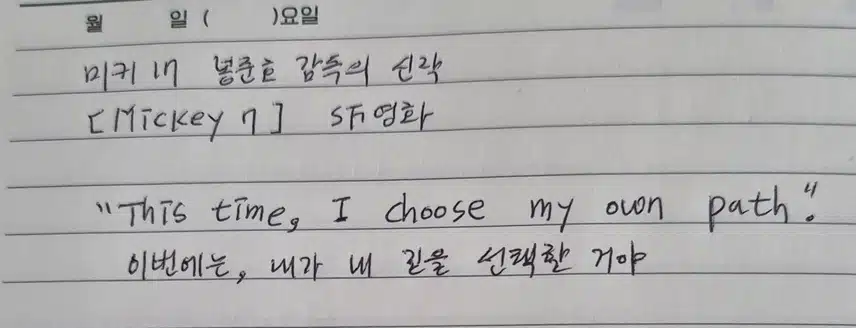 월 일 ( )요일
미키 17 봉준호 감독의 신작
[Mickey 7] SF영화
"This time, I choose my own path".
이번에는, 내가 내 길을 선택할 거야